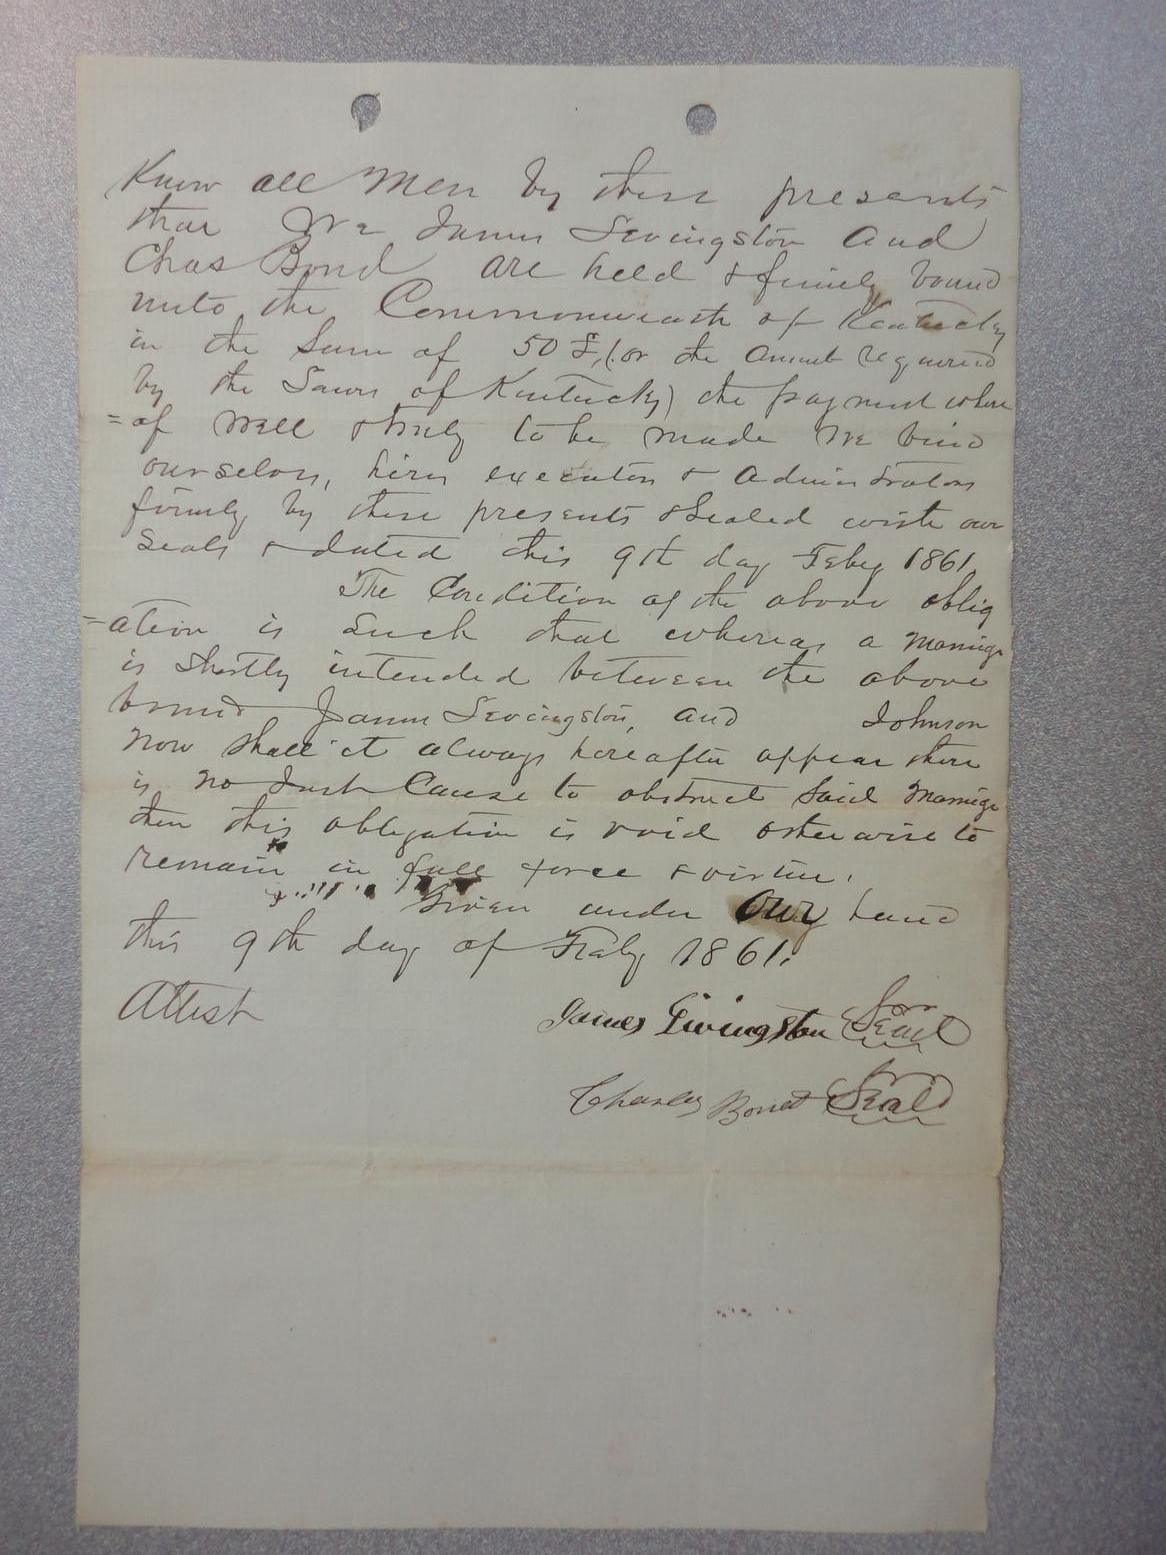 Know all Men by these presents
that We James Levingston and
Chas Bond are held & firmly bound
unto the Commonwealth of Kentucky
in the Sum of 50 £, (or the amount required
by the Laws of Kentucky) the payment where
=of well & truly to be made We bind
ourselves, heirs executors & administrators
firmly by these presents & Sealed with our
Seals & dated this 9th day Feby 1861
The Condition of the above oblig
=ation is Such that whereas a Marriage
is shortly intended between the above
bound James Levingston, and Johnson
now shall it always hereafter appear there
is no Just Cause to obstruct said Marriage
then this obligation is void otherwise to
remain in full force & virtue.
Given under Our hand
this 9th day of Feby 1861.
Attest James Livingston Seal
Charles Bond Seal